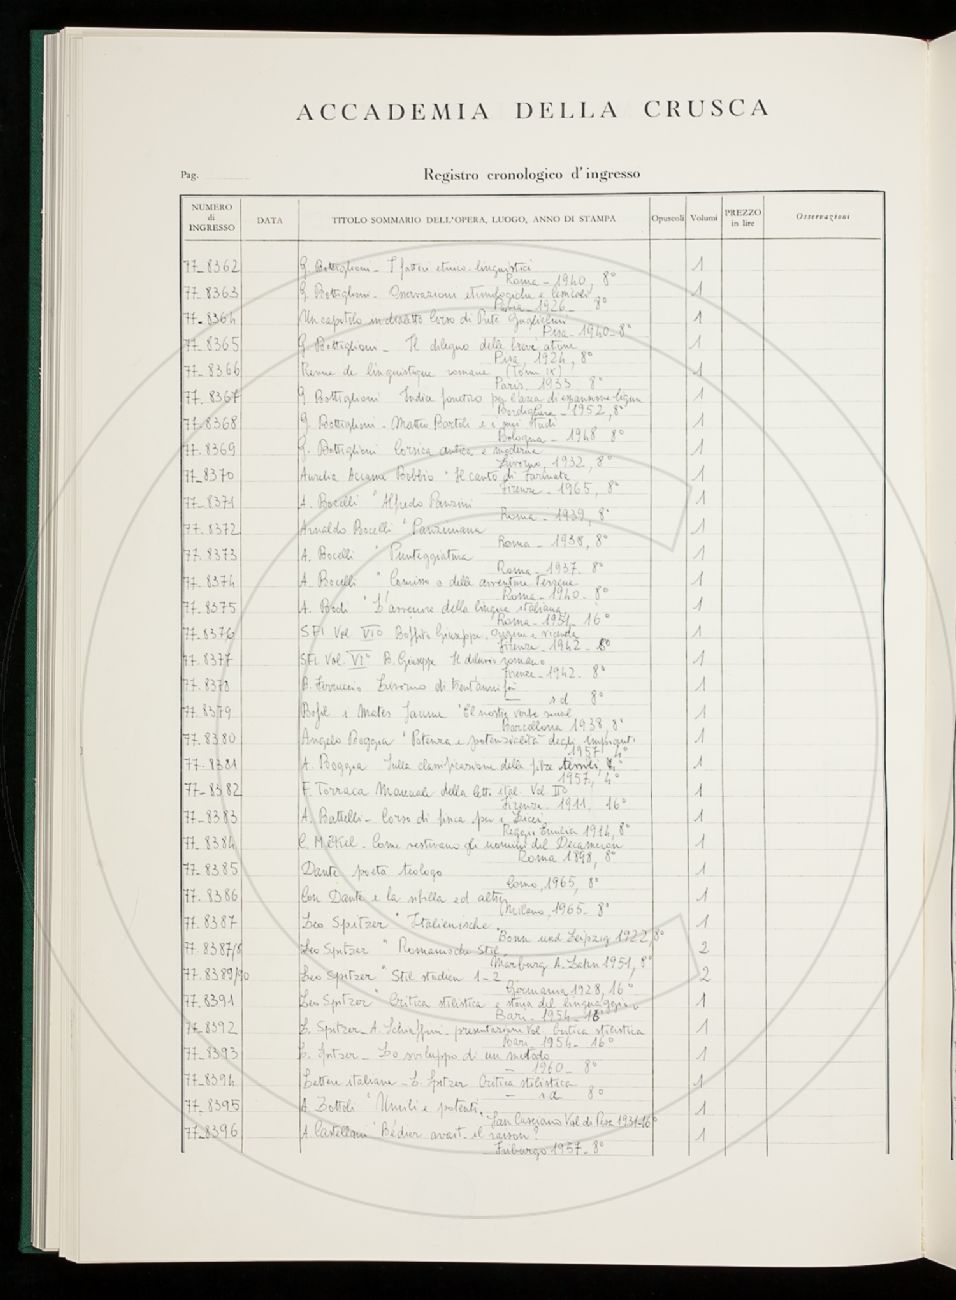 ACCADEMIA DELLA CRUSCA
Pag.
Registro cronologico d'ingresso
NUMERO di INGRESSO DATA TITOLO SOMMARIO DELL'OPERA, LUOGO, ANNO DI STAMPA Opuscoli Volumi PREZZO in lire Osservazioni
77-8362 G. Bottiglioni - I fattori etnico-linguistici 1
Roma - 1940, 8°
77-8363 G. Bottiglioni - Osservazioni etimologiche e lessicali 1
1926 - 8°
77-8364 Un capitolo inedito Corso di Pietro Guglielmi 1
Pisa - 1940 - 8°
77-8365 G. Bottiglioni - Il dileguo della breve atona 1
Pisa, 1924, 8°
77-8366 Revue de linguistique romane (Tom. IX) 1
Paris, 1933 8°
77-8367 G. Bottiglioni India fonetico per l'area di espansione ligure 1
Bordighera - 1952, 8°
77-8368 G. Bottiglioni - Matteo Bartoli e i suoi studi 1
Bologna - 1948 8°
77-8369 G. Bottiglioni Corsica antica e moderna 1
Livorno, 1932, 8°
77-8370 Aurelia Accame Bobbio "Il canto di Farinata 1
Firenze - 1965, 8°
77-8371 A. Bocelli "Alfredo Panzini 1
Roma - 1939, 8°
77-8372 Arnaldo Bocelli "Panziniana 1
Roma - 1938, 8°
77-8373 A. Bocelli " Punteggiatura 1
Roma - 1937. 8°
77-8374 A. Bocelli " Comisso o delle avventure terrene 1
Roma - 1940. 8°
77-8375 A. "L'avvenire della lingua italiana 1
Roma - 1951. 16°
77-8376 SFI Vol VII° Boffito Giuseppe, Origine e vicende 1
Firenze - 1942 - 8°
77-8377 SFI. Vol. VI° B. Giuseppe Il diluvio romano 1
Firenze - 1942. 8°
77-8378 B. Ferruccio Livorno di trent'anni fa 1
— s d 8°
77-8379 Bofill i Mates Jaume "El nostre verbe 1
Barcellona 1938, 8°
77-8380 Angelo Boggia "Potenza e potenzialità degli impianti 1
1957, 4°
77-8381 A. Boggia Sulla classificazione delle fibre tessili, 1
1957, 4°
77-8382 F. Torraca Manuale della lett. ital. Vol II° 1
Firenze - 1911. 16°
77-8383 A. Battelli - Corso di fisica per i Licei, 1
Reggio Emilia 1914, 8°
77-8384 C. Merkel - Come vestivano gli uomini del Decameron 1
Roma 1898, 8°
77-8385 Dante poeta teologo 1
Como, 1965, 8°
77-8386 Con Dante e la sibilla ed altri 1
Milano, 1965 - 8°
77-8387 Leo Spitzer " Italienische 1
Bonn und Leipzig 1922, 8°
77-8387/8 Leo Spitzer " Romanische Stil 2
Marburg A. Lahn 1951, 8°
77-8389/90 Leo Spitzer " Stil studien 1-2 2
Germania 1928, 16°
77-8391 Leo Spitzer " Critica stilistica e storia del linguaggio 1
Bari - 1954 - 16°
77-8392 L. Spitzer - A. Schiaffini - presentazione Vol. Critica stilistica 1
Bari 1954 - 16°
77-8393 L. Spitzer - Lo sviluppo di un metodo 1
— 1960 - 8°
77-8394 Lettere italiane - L. Spitzer Critica stilistica 1
— s d 8°
77-8395 A. Zottoli "Umili e potenti. 1
San Casciano Val di Pesa 1931-16°
77-8396 A. Castellani "Bédier avait-il raison? 1
Friburgo 1957 - 8°